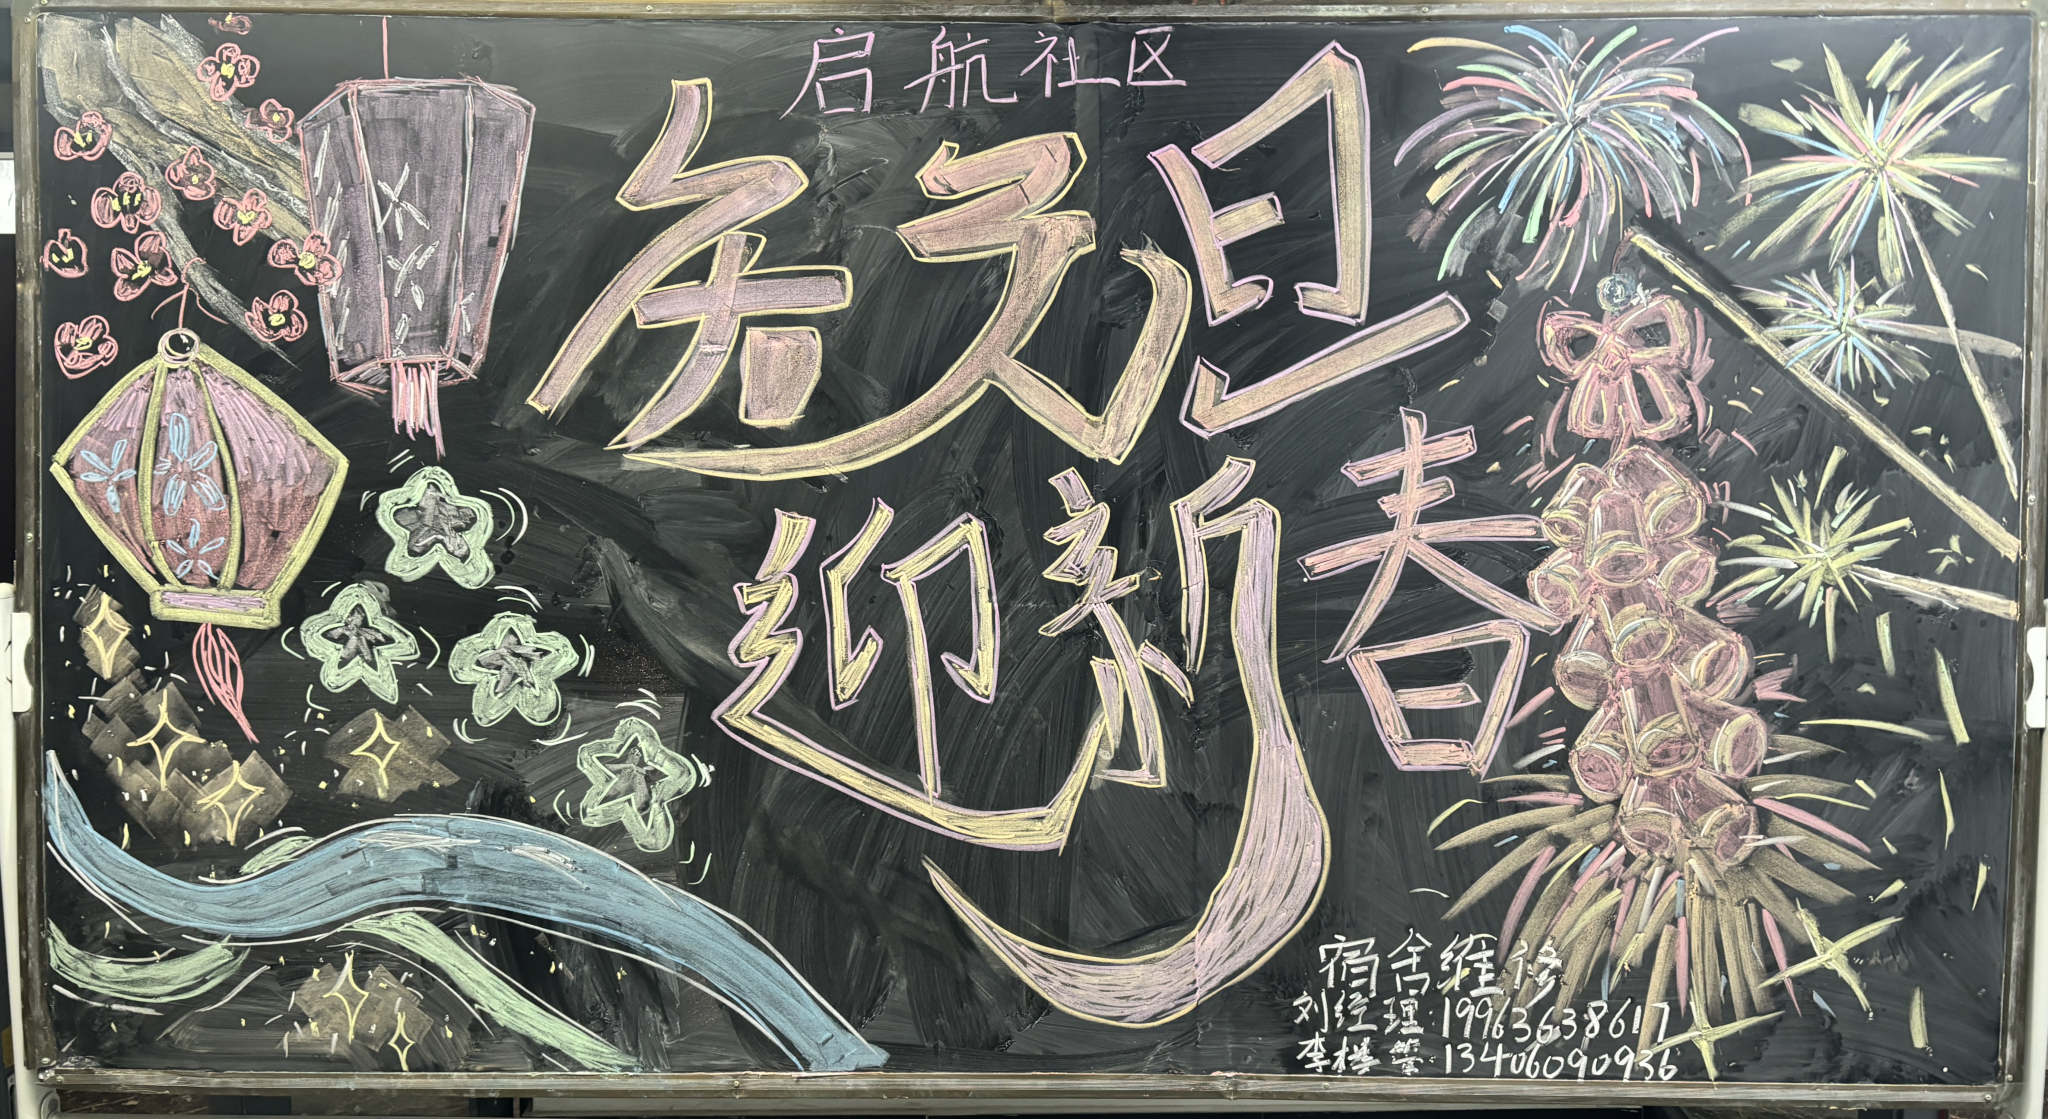 启航社区
庆元旦
迎新春
宿舍维修
刘经理:19963638617
李楼管:13406090936